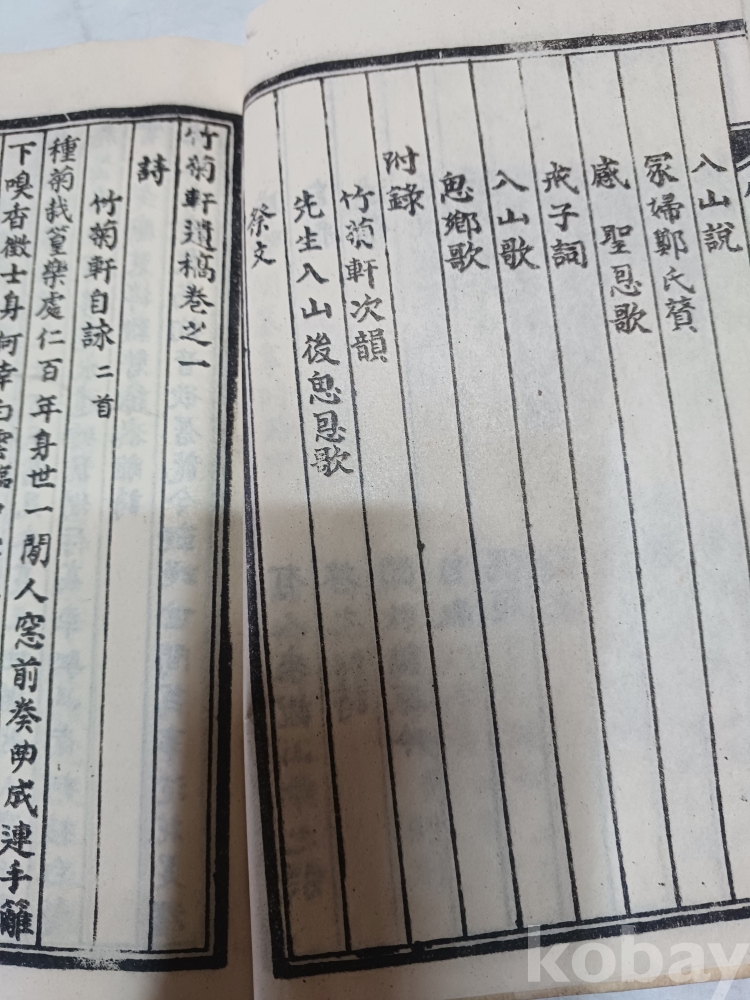 入山說
冢婦鄭氏贊
感 聖恩歌
戒子詞
入山歌
思鄉歌
附錄
竹菊軒次韻
先生入山後思恩歌
祭文
竹菊軒遺稿卷之一
詩
竹菊軒自詠 二首
種菊栽篁樂處仁百年身世一閒人窓前奏曲成連手籬
下嗅香徵士身何幸白雲
kobay